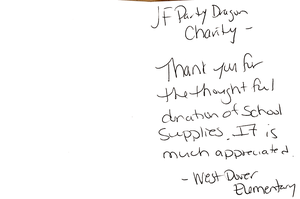 JF Party Dragon
Charity -
Thank you for
the thought ful
donation of School
Supplies. It is
much appreciated.
- West Dover
Elementary